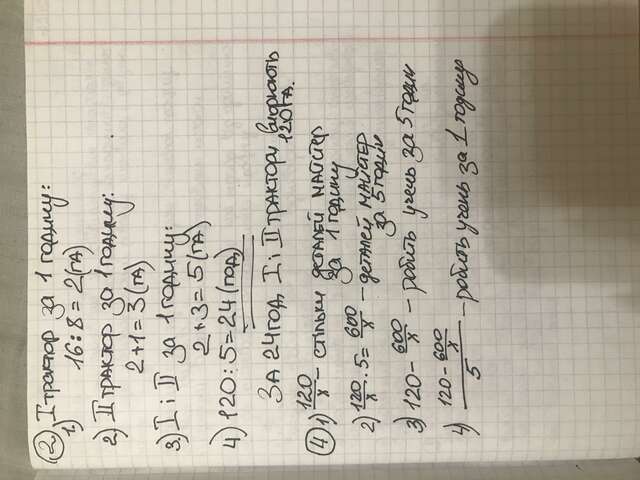 ② 1) I трактор за 1 годину:
16 : 8 = 2 (га)
2) II трактор за 1 годину:
2+1=3 (га)
3) I і II за 1 годину:
2+3=5 (га)
4) 120 : 5 = 24 (год)
За 24 год I і II трактори виорюють
120 га.
④ 1) 120/x – стільки деталей майстер
за 1 годину
2) 120/x · 5 = 600/x – деталей майстер
за 5 годин
3) 120 – 600/x – робить учень за 5 годин
4) (120 – 600/x)/5 – робить учень за 1 годину